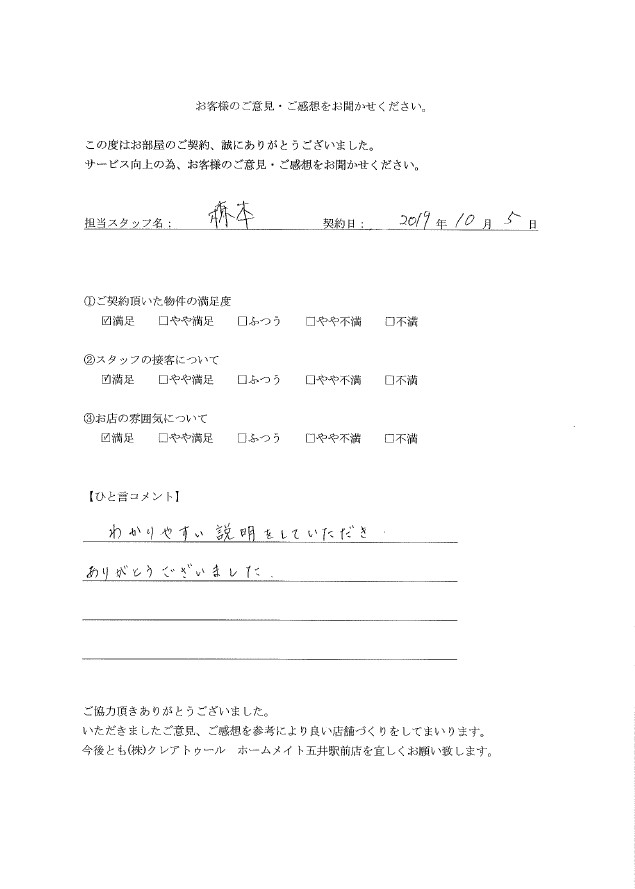 お客様のご意見・ご感想をお聞かせください。
この度はお部屋のご契約、誠にありがとうございました。
サービス向上の為、お客様のご意見・ご感想をお聞かせください。
担当スタッフ名： 森本 契約日： 2019 年 10 月 5 日
①ご契約頂いた物件の満足度
☑満足 □やや満足 □ふつう □やや不満 □不満
②スタッフの接客について
☑満足 □やや満足 □ふつう □やや不満 □不満
③お店の雰囲気について
☑満足 □やや満足 □ふつう □やや不満 □不満
【ひと言コメント】
わかりやすい説明をしていただき
ありがとうございました.
ご協力頂きありがとうございました。
いただきましたご意見、ご感想を参考により良い店舗づくりをしてまいります。
今後とも(株)クレアトゥール ホームメイト五井駅前店を宜しくお願い致します。